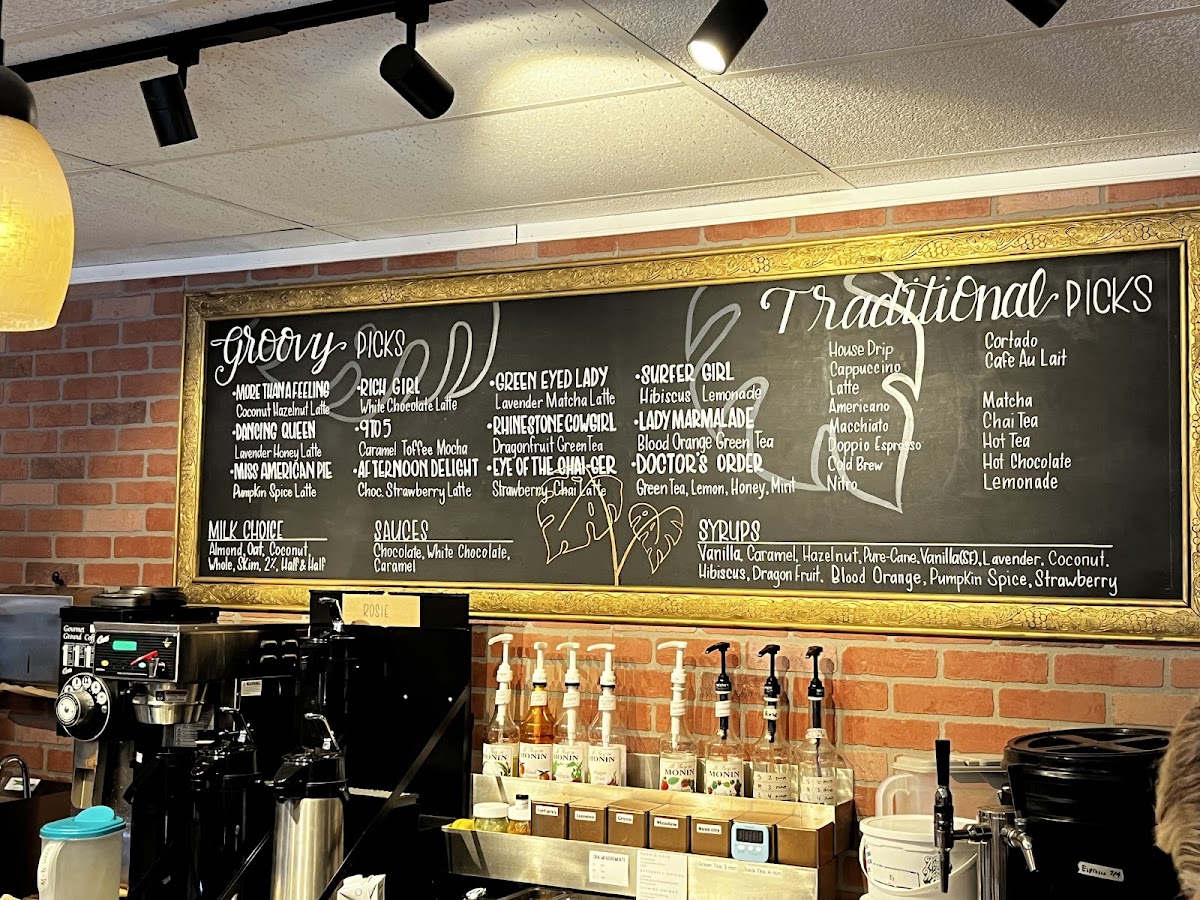 Groovy PICKS
•MORE THAN A FEELING
Coconut Hazelnut Latte
•DANCING QUEEN
Lavender Honey Latte
•MISS AMERICAN PIE
Pumpkin Spice Latte
•RICH GIRL
White Chocolate Latte
•9 TO 5
Caramel Toffee Mocha
•AFTERNOON DELIGHT
Choc. Strawberry Latte
•GREEN EYED LADY
Lavender Matcha Latte
•RHINESTONE COWGIRL
Dragonfruit Green Tea
•EYE OF THE CHAI-GER
Strawberry Chai Latte
•SURFER GIRL
Hibiscus Lemonade
•LADY MARMALADE
Blood Orange Green Tea
•DOCTOR'S ORDER
Green Tea, Lemon, Honey, Mint
Traditional PICKS
House Drip
Cappuccino
Latte
Americano
Macchiato
Doppio Espresso
Cold Brew
Nitro
Cortado
Cafe Au Lait
Matcha
Chai Tea
Hot Tea
Hot Chocolate
Lemonade
MILK CHOICE
Almond, Oat, Coconut,
Whole, Skim, 2%, Half & Half
SAUCES
Chocolate, White Chocolate,
Caramel
SYRUPS
Vanilla, Caramel, Hazelnut, Pure-Cane, Vanilla(SF), Lavender, Coconut,
Hibiscus, Dragon Fruit, Blood Orange, Pumpkin Spice, Strawberry
ROSIE
Gourmet
Ground
MONIN
MONIN
MONIN
MONIN
MONIN
MONIN
Green Tea: 3 min
Espresso